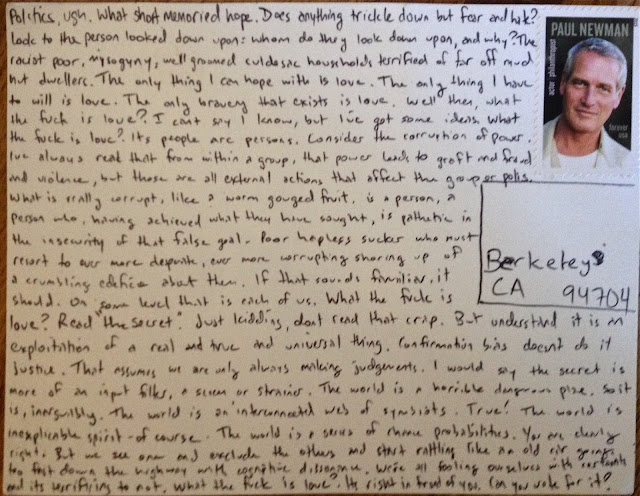 Politics, ugh. What short memoried hope. Does anything trickle down but fear and hate?
Look to the person looked down upon: whom do they look down upon, and why? The
racist poor, mysogyny, well groomed culdesac households terrified of far off mud
hut dwellers. The only thing I can hope with is love. The only thing I have
to will is love. The only bravery that exists is love. Well then, what
the fuck is love? I cant say I know, but I've got some ideas. What
the fuck is love? Its people are persons. Consider the corruption of power.
I've always read that from within a group, that power leads to graft and fraud
and violence, but those are all external actions that affect the group or polis.
What is really corrupt, like a worm gouged fruit, is a person, a
person who, having achieved what they have sought, is pathetic in
the insecurity of that false goal. Poor hapless sucker who must
resort to ever more desperate, ever more corrupting shoring up of
a crumbling edifice about them. If that sounds familiar, it
should. On some level that is each of us. What the fuck is
love? Read "the Secret". Just kidding, dont read that crap. But understand it is an
exploitation of a real and true and universal thing. Confirmation bias doesnt do it
justice. That assumes we are only always making judgements. I would say the secret is
more of an input filter, a screen or strainer. The world is a horrible dangerous place. So it
is, inarguably. The world is an interconnected web of symbiots. True! The world is
inexplicable spirit - of course. The world is a series of chance probabilities. You are clearly
right. But we see one and exclude the others and start rattling like an old car going
too fast down the highway with cognitive dissonance. We're all fooling ourselves with
and its terrifying to not. What the fuck is love? Its right in front of you. Can you vote for it?
PAUL NEWMAN
actor / philanthropist
forever
USA
Berkeley
CA 94704